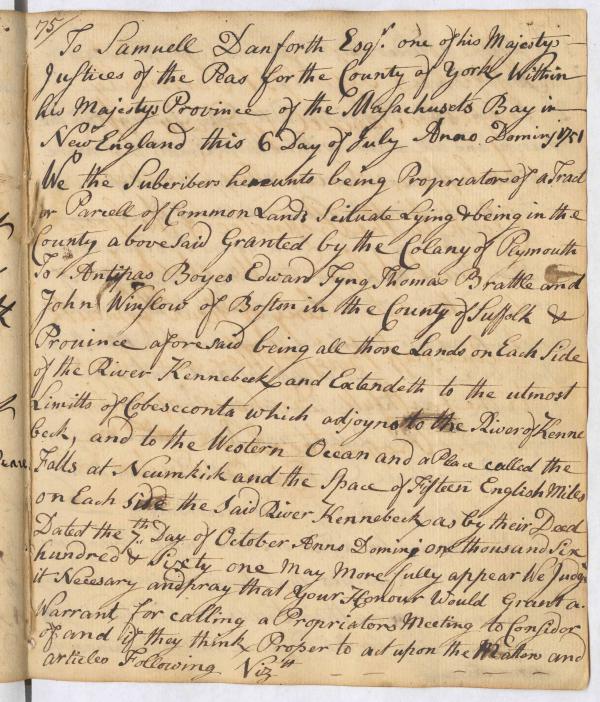 75/
To Samuell Danforth Esqr. one of his Majestys
Justices of the Peas for the County of York, Within
his Majestys Province of the Masachusets Bay in
New England this 6 Day of July Anno Domini 1751
We the Subcribers hereunto being Propriators of a Tract
or Parcell of Common Lands Scituate Lying & being in the
County above Said Granted by the Colany of Plymouth
To Antipas Boyes Edward Tyng Thomas Brattle and
John Winslow of Boston in the County of Suffolk &
Province aforesaid being all those Lands on Each Side
of the River Kennebeck and Extendeth to the utmost
Limitts of Cobeseconta which adjoyns to the River of Kenne
beck, and to the Western Ocean and a Place called the
Falls at Neumkick and the Space of Fifteen English Miles
on Each Side the Said River Kennebeck as by their Deed
Dated the 7th Day of October Anno Domini on thousand Six
hundred & Sixty one May More fully appear We Judge
it Necesary and pray that Your Honour Would Grant a
Warrant for calling a Propriators Meeting to Considor
of and if they think Proper to act upon the Matters and
articles Following Vizt